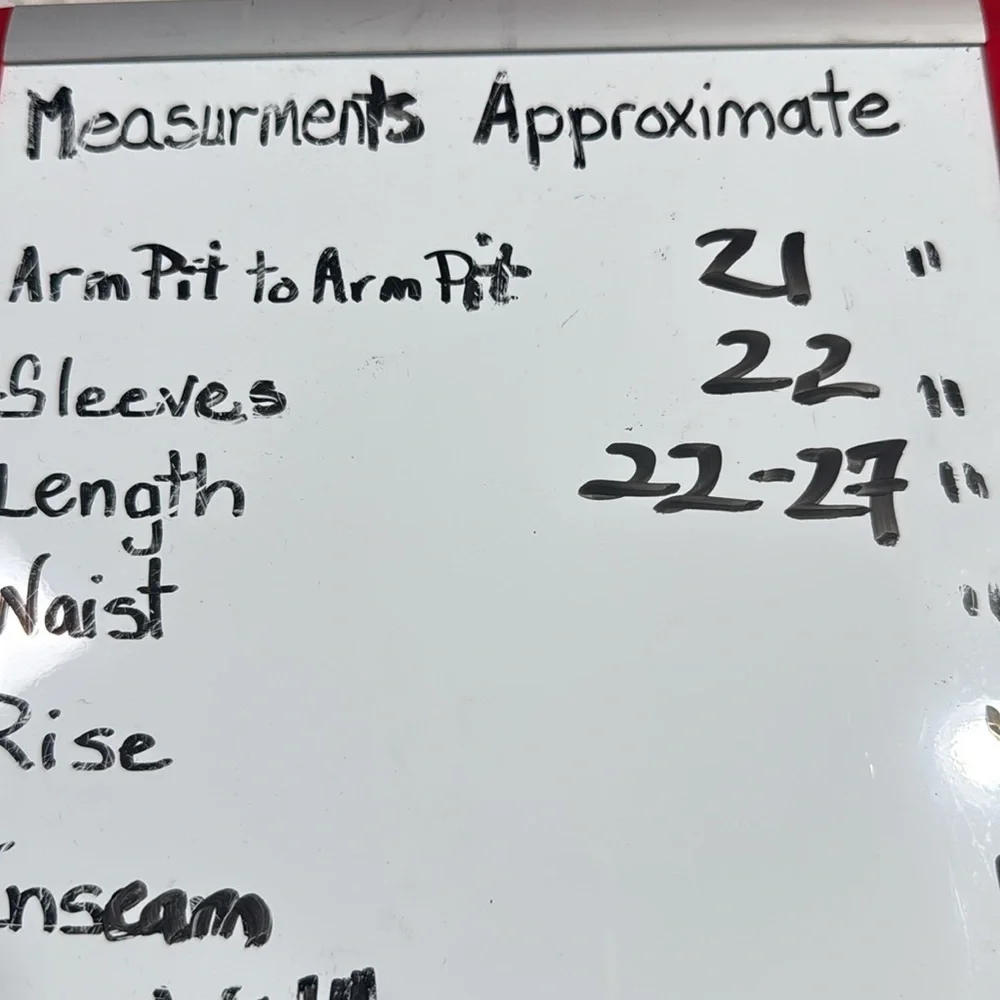 Measurments Approximate
Arm Pit to Arm Pit 21 "
Sleeves 22 "
Length 22-27 "
Waist "
Rise
Inseam